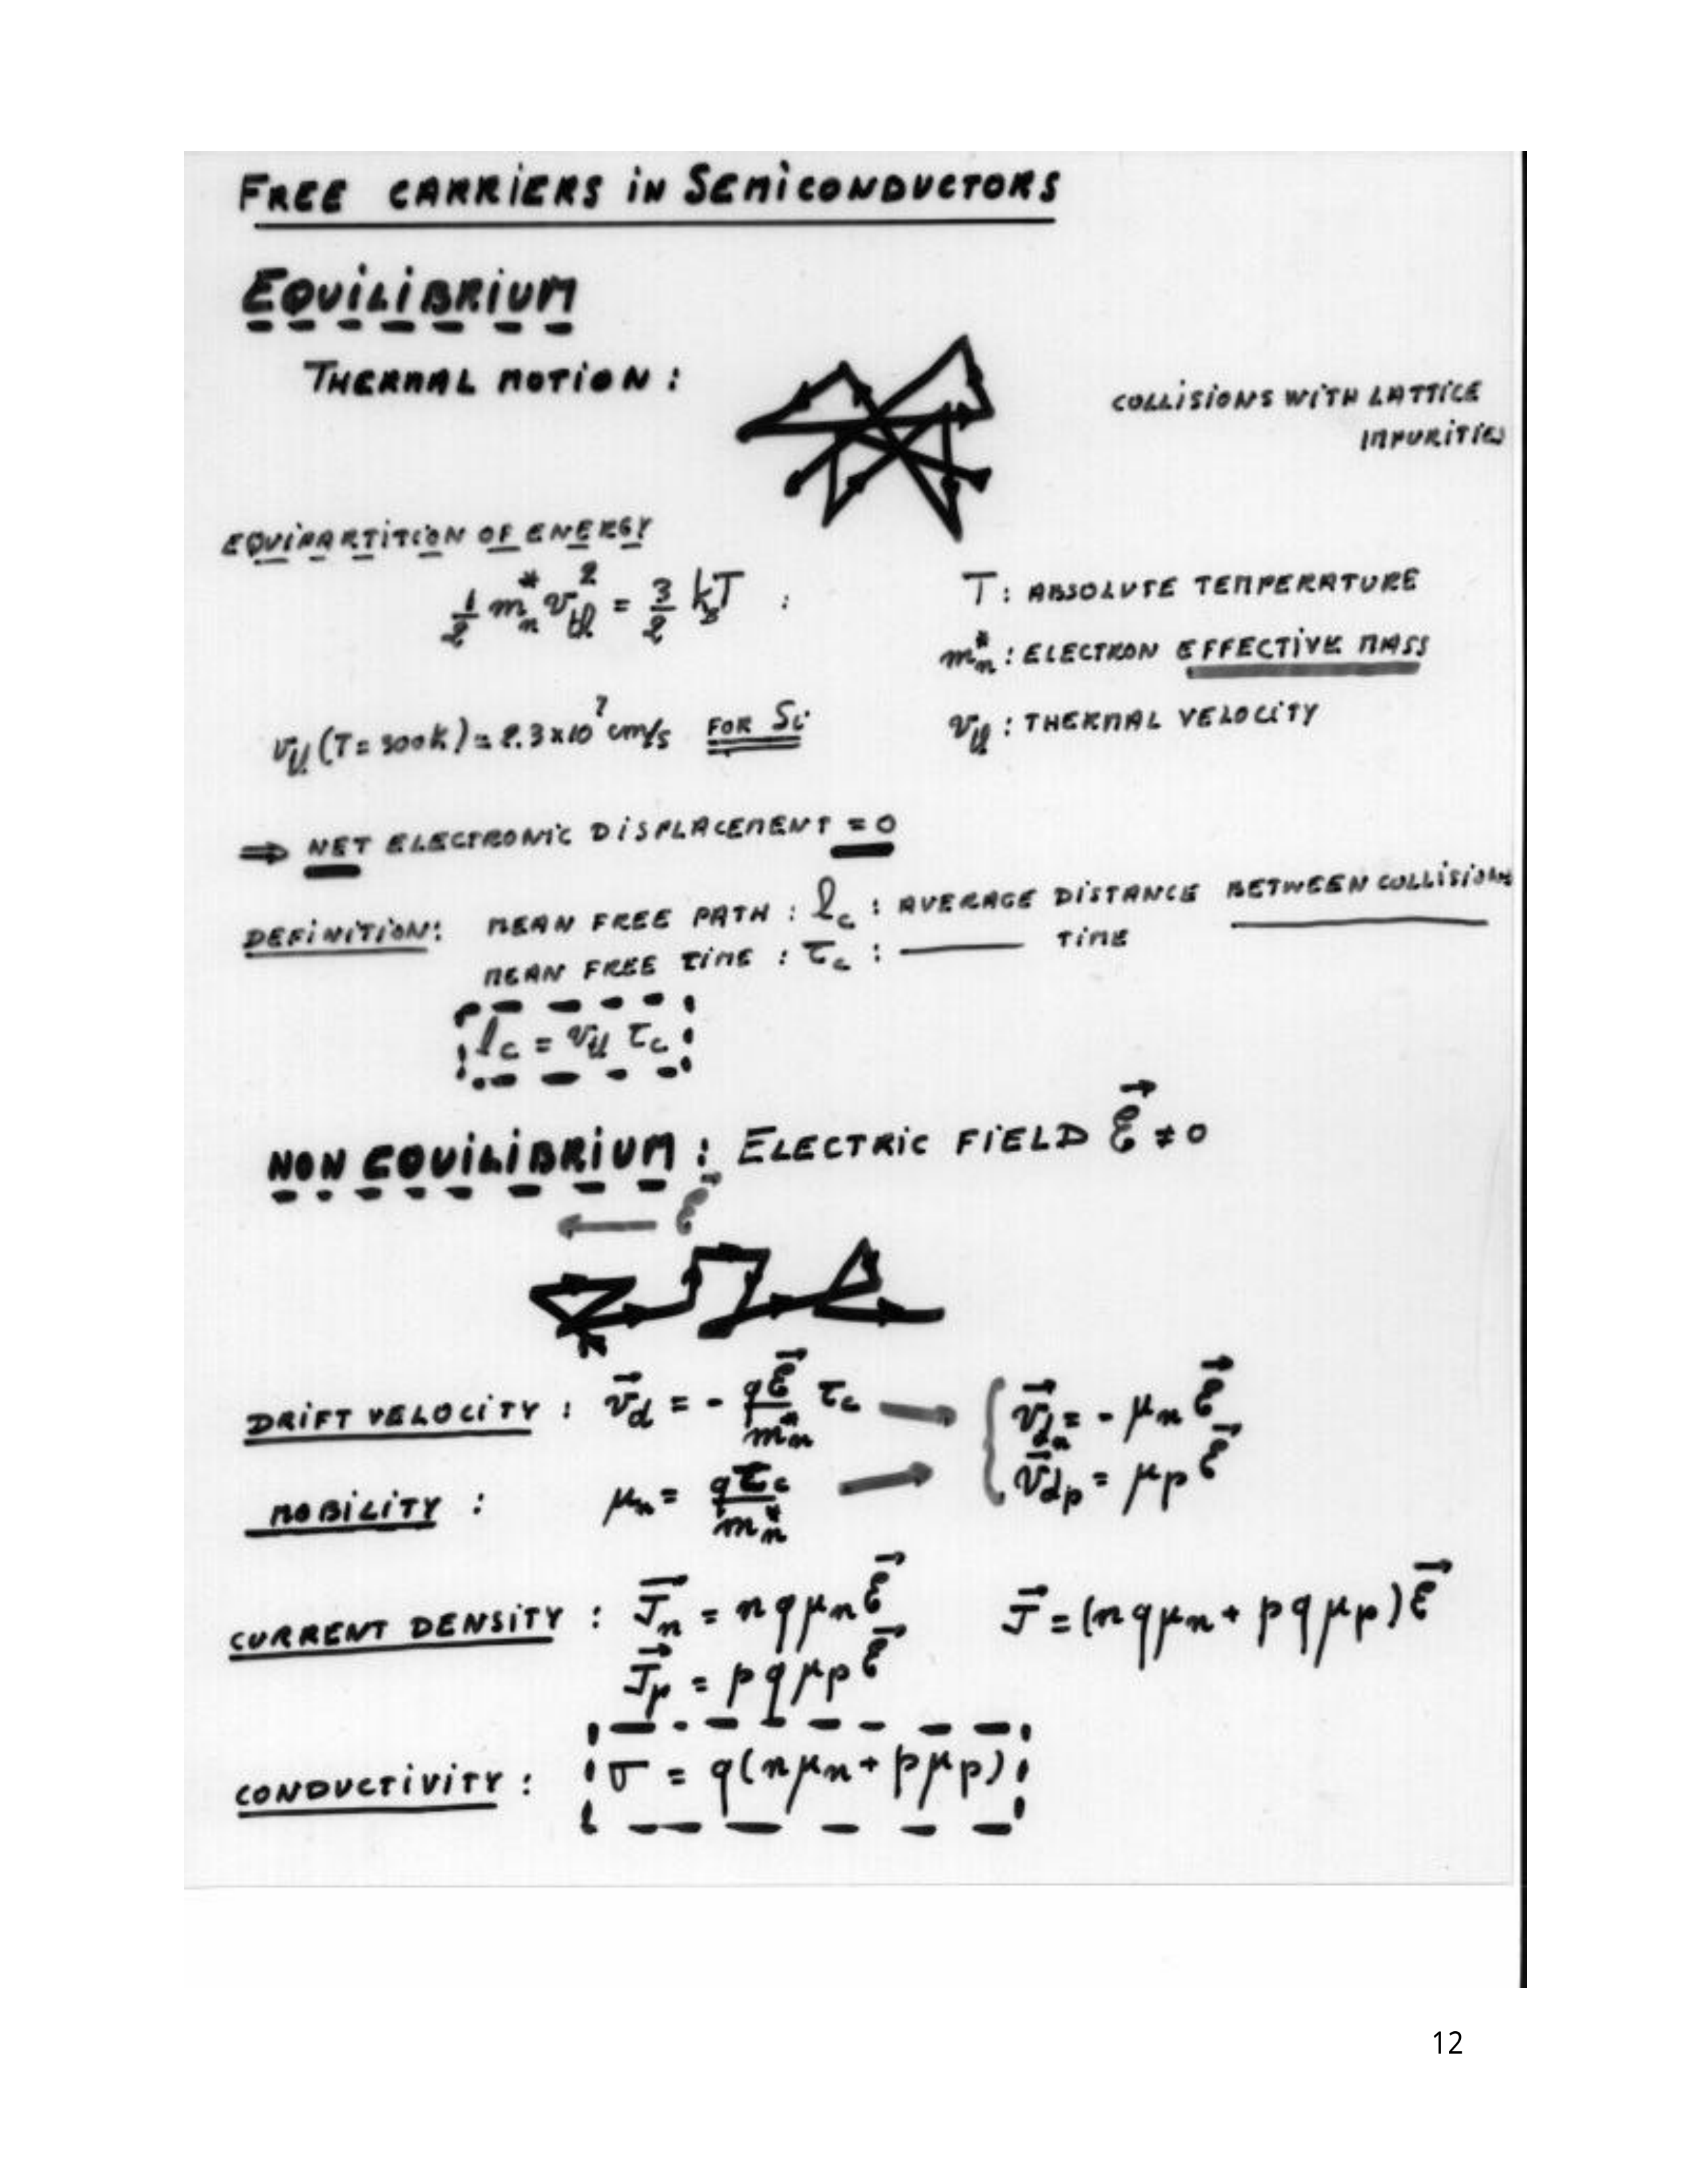 FREE CARRIERS IN SEMICONDUCTORS
EQUILIBRIUM
THERMAL MOTION :
COLLISIONS WITH LATTICE
IMPURITIES
EQUIPARTITION OF ENERGY
1/2 m*ₙ v_th² = 3/2 k_B T :
T : ABSOLUTE TEMPERATURE
m*ₙ : ELECTRON EFFECTIVE MASS
v_th (T = 300K) = 2.3 x 10⁷ cm/s FOR Si
v_th : THERMAL VELOCITY
⇒ NET ELECTRONIC DISPLACEMENT = 0
DEFINITION: MEAN FREE PATH : l_c : AVERAGE DISTANCE BETWEEN COLLISIONS
MEAN FREE TIME : τ_c : —— TIME
l_c = v_th τ_c
NON EQUILIBRIUM : ELECTRIC FIELD ℰ⃗ ≠ 0
← ℰ⃗
DRIFT VELOCITY : v⃗_d = - qℰ⃗/m*ₙ τ_c → { v⃗_dn = - μₙ ℰ⃗
v⃗_dp = μ_p ℰ⃗
MOBILITY : μₙ = qτ_c/m*ₙ →
CURRENT DENSITY : J⃗ₙ = n q μₙ ℰ⃗ J⃗ = (n q μₙ + p q μ_p) ℰ⃗
J⃗_p = p q μ_p ℰ⃗
CONDUCTIVITY : σ = q(n μₙ + p μ_p)
12